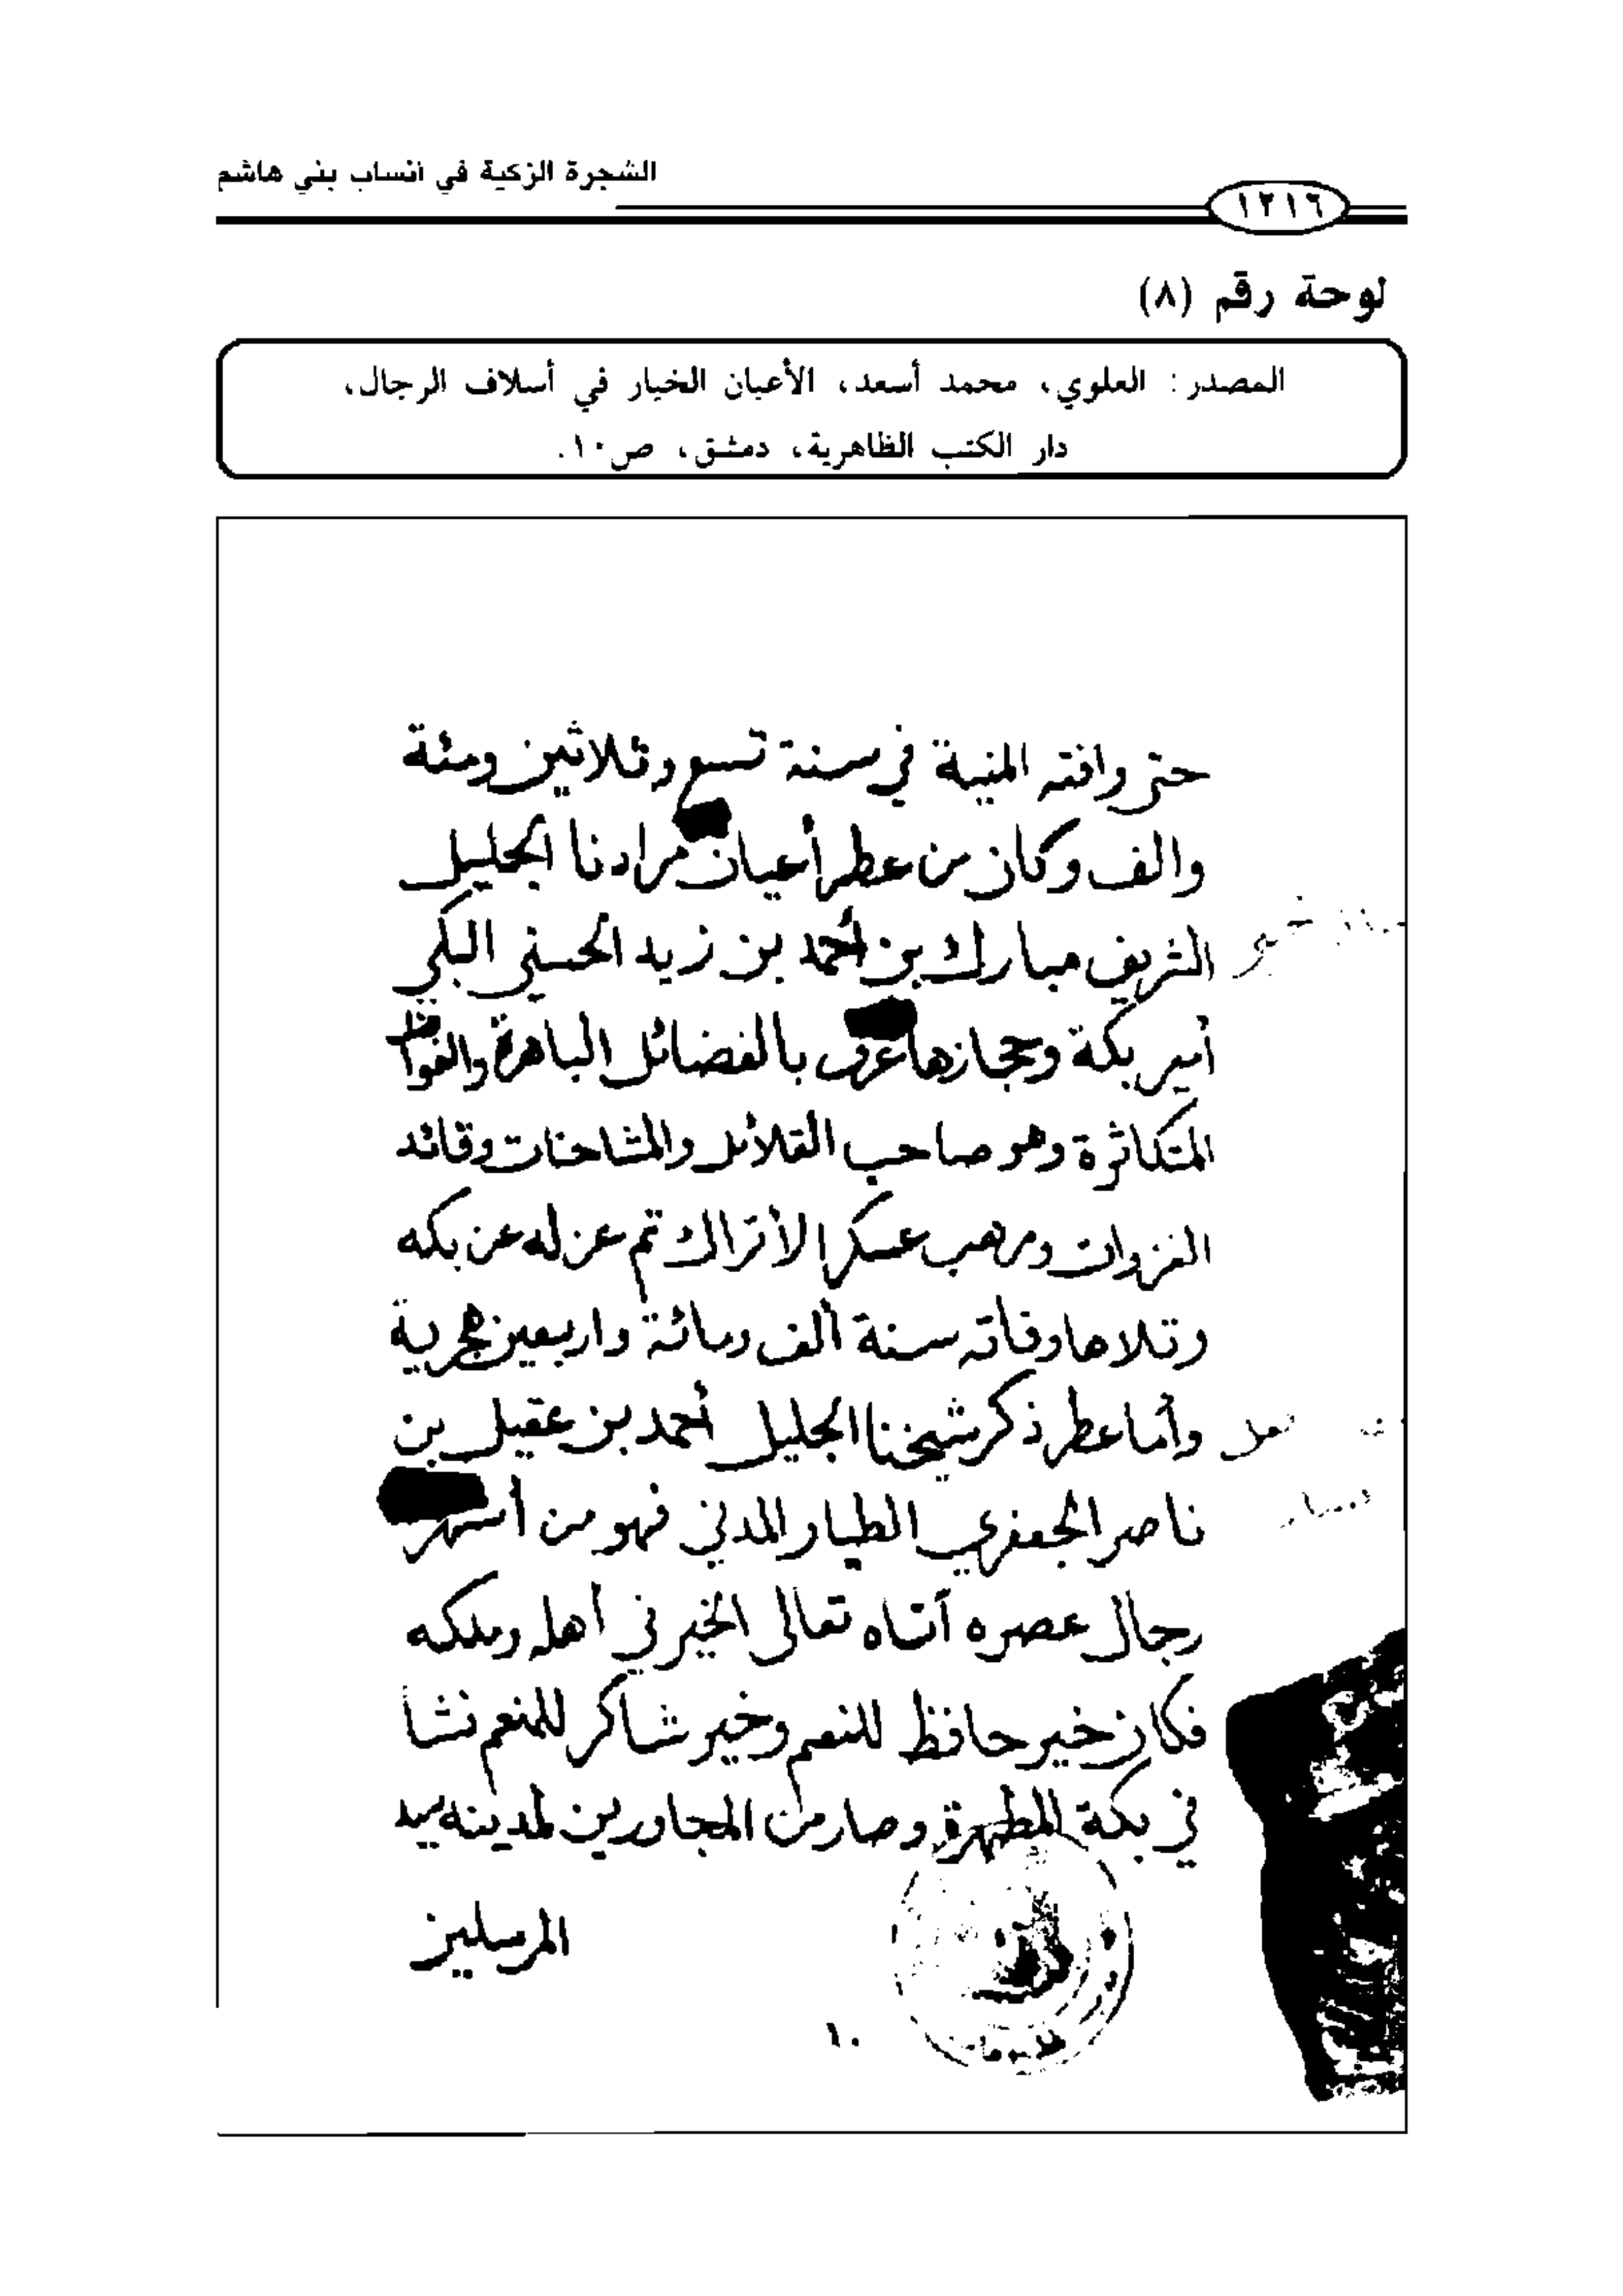 الشجرة الزكية في أنساب بني هاشم
١٢١٦
لوحة رقم (٨)
المصدر: العلوي، محمد أسعد، الأعيان الخيار في أسلاف الرجال،
دار الكتب الظاهرية، دمشق، ص١٠.
حتى وافته المنية في سنة تسع وثلاثين ومئة
والف وكان من عطر أعيان مرادنا الجليل
الشريف مبارك بن أحمد بن زيد الحسني البكي
أمير بكة وحجازها عرف بالفضائل الباهرة
المتكاثرة وهو صاحب القلائل والمشاحنات وقائد
الغزوات ومرهب عسكر الأتراك تم عزله عن بكه
وتلاها وفاته سنة ألف ومائة واربعين هجرية
وأما عطر ذكر شيخنا الجليل أحمد بن عقيل بن
ناصر الجعفري الطيار المدني فهو من أشهر
رجال عصره آتاه تعالى الخير في أهله وملكه
فكان خير حافظ للنعم وخير شاكر للمنعم نشا
في بكة المطهرة وصار من المجاورين لمدينه سيد
المرسلين
١٠